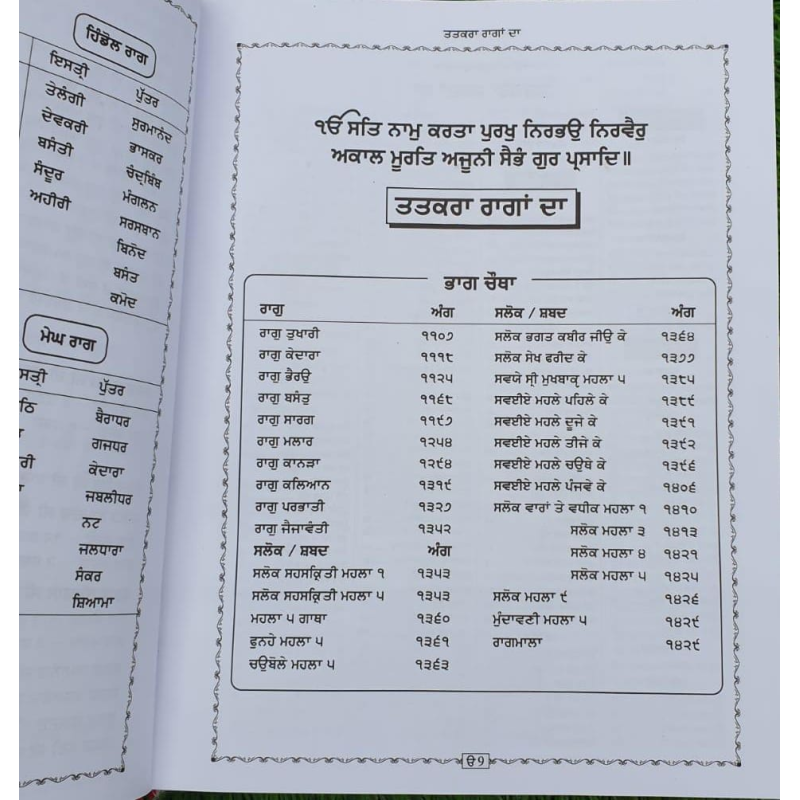 ਹਿੰਡੋਲ ਰਾਗ
ਇਸਤ੍ਰੀ ਪੁੱਤਰ
ਤੇਲੰਗੀ ਸੁਰਮਾਨੰਦ
ਦੇਵਕਰੀ ਭਾਸਕਰ
ਬਸੰਤੀ ਚੰਦ੍ਰਬਿੰਬ
ਸੰਦੂਰ ਮੰਗਲਨ
ਅਹੀਰੀ ਸਰਸਬਾਨ
ਬਿਨੋਦ
ਬਸੰਤ
ਕਮੋਦ
ਮੇਘ ਰਾਗ
ਸਤ੍ਰੀ ਪੁੱਤਰ
ਬੈਰਾਧਰ
ਗਜਧਰ
ਕੇਦਾਰਾ
ਜਬਲੀਧਰ
ਨਟ
ਜਲਧਾਰਾ
ਸੰਕਰ
ਸ਼ਿਆਮਾ
ਤਤਕਰਾ ਰਾਗਾਂ ਦਾ
ੴ ਸਤਿ ਨਾਮੁ ਕਰਤਾ ਪੁਰਖੁ ਨਿਰਭਉ ਨਿਰਵੈਰੁ
ਅਕਾਲ ਮੂਰਤਿ ਅਜੂਨੀ ਸੈਭੰ ਗੁਰ ਪ੍ਰਸਾਦਿ॥
ਤਤਕਰਾ ਰਾਗਾਂ ਦਾ
ਭਾਗ ਚੌਥਾ
ਰਾਗੁ ਅੰਗ ਸਲੋਕ / ਸ਼ਬਦ ਅੰਗ
ਰਾਗੁ ਤੁਖਾਰੀ ੧੧੦੭ ਸਲੋਕ ਭਗਤ ਕਬੀਰ ਜੀਉ ਕੇ ੧੩੬੪
ਰਾਗੁ ਕੇਦਾਰਾ ੧੧੧੮ ਸਲੋਕ ਸੇਖ ਫਰੀਦ ਕੇ ੧੩੭੭
ਰਾਗੁ ਭੈਰਉ ੧੧੨੫ ਸਵਯੇ ਸ੍ਰੀ ਮੁਖਬਾਕ੍ਯ ਮਹਲਾ ੫ ੧੩੮੫
ਰਾਗੁ ਬਸੰਤੁ ੧੧੬੮ ਸਵਈਏ ਮਹਲੇ ਪਹਿਲੇ ਕੇ ੧੩੮੯
ਰਾਗੁ ਸਾਰਗ ੧੧੯੭ ਸਵਈਏ ਮਹਲੇ ਦੂਜੇ ਕੇ ੧੩੯੧
ਰਾਗੁ ਮਲਾਰ ੧੨੫੪ ਸਵਈਏ ਮਹਲੇ ਤੀਜੇ ਕੇ ੧੩੯੨
ਰਾਗੁ ਕਾਨੜਾ ੧੨੯੪ ਸਵਈਏ ਮਹਲੇ ਚਉਥੇ ਕੇ ੧੩੯੬
ਰਾਗੁ ਕਲਿਆਨ ੧੩੧੯ ਸਵਈਏ ਮਹਲੇ ਪੰਜਵੇ ਕੇ ੧੪੦੬
ਰਾਗੁ ਪਰਭਾਤੀ ੧੩੨੭ ਸਲੋਕ ਵਾਰਾਂ ਤੇ ਵਧੀਕ ਮਹਲਾ ੧ ੧੪੧੦
ਰਾਗੁ ਜੈਜਾਵੰਤੀ ੧੩੫੨ ਸਲੋਕ ਮਹਲਾ ੩ ੧੪੧੩
ਸਲੋਕ / ਸ਼ਬਦ ਅੰਗ ਸਲੋਕ ਮਹਲਾ ੪ ੧੪੨੧
ਸਲੋਕ ਸਹਸਕ੍ਰਿਤੀ ਮਹਲਾ ੧ ੧੩੫੩ ਸਲੋਕ ਮਹਲਾ ੫ ੧੪੨੫
ਸਲੋਕ ਸਹਸਕ੍ਰਿਤੀ ਮਹਲਾ ੫ ੧੩੫੩ ਸਲੋਕ ਮਹਲਾ ੯ ੧੪੨੬
ਮਹਲਾ ੫ ਗਾਥਾ ੧੩੬੦ ਮੁੰਦਾਵਣੀ ਮਹਲਾ ੫ ੧੪੨੯
ਫੁਨਹੇ ਮਹਲਾ ੫ ੧੩੬੧ ਰਾਗਮਾਲਾ ੧੪੨੯
ਚਉਬੋਲੇ ਮਹਲਾ ੫ ੧੩੬੩